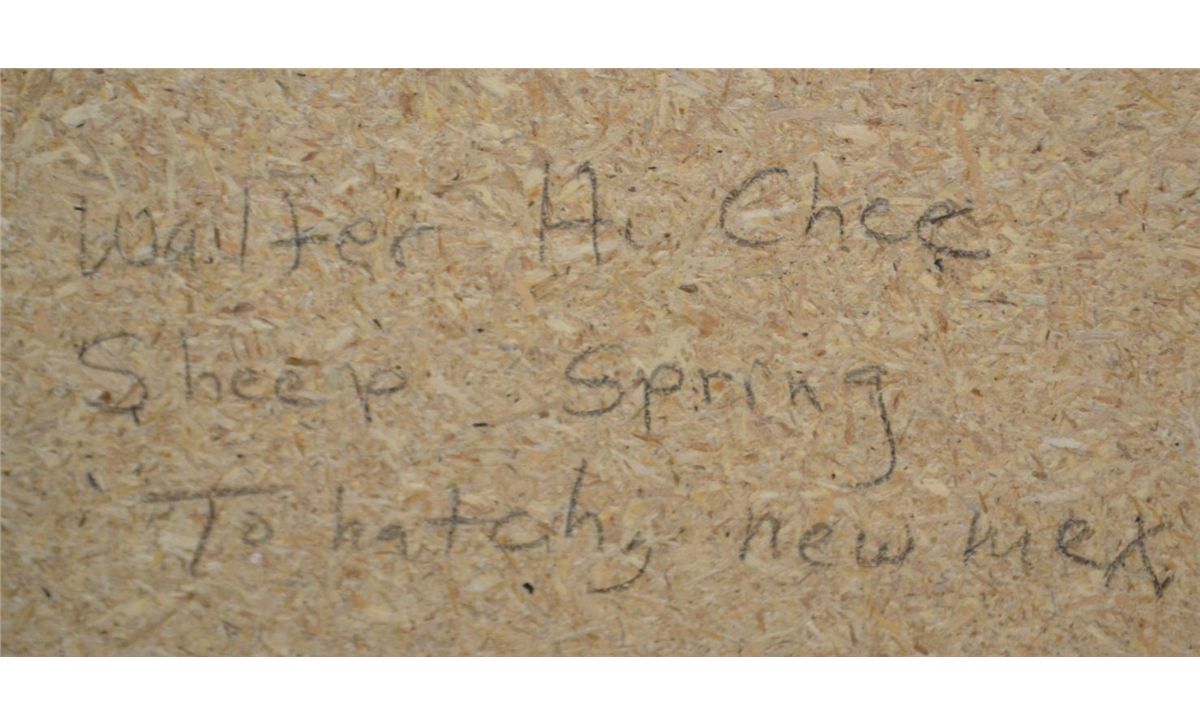 Walter H. Chee
Sheep Spring
Tohatchy new mex